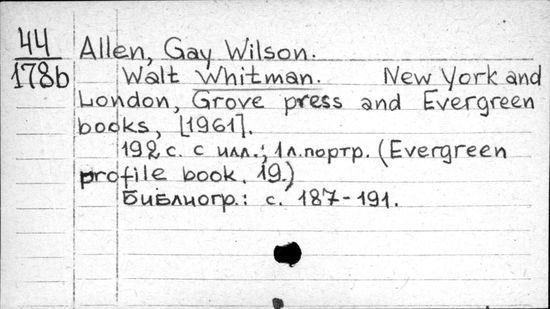 44
178b
Allen, Gay Wilson.
Walt Whitman. New York and
London, Grove press and Evergreen
books, [1961].
192 с. с илл.; 1 л. портр. (Evergreen
profile book. 19.)
Библиогр.: с. 187-191.